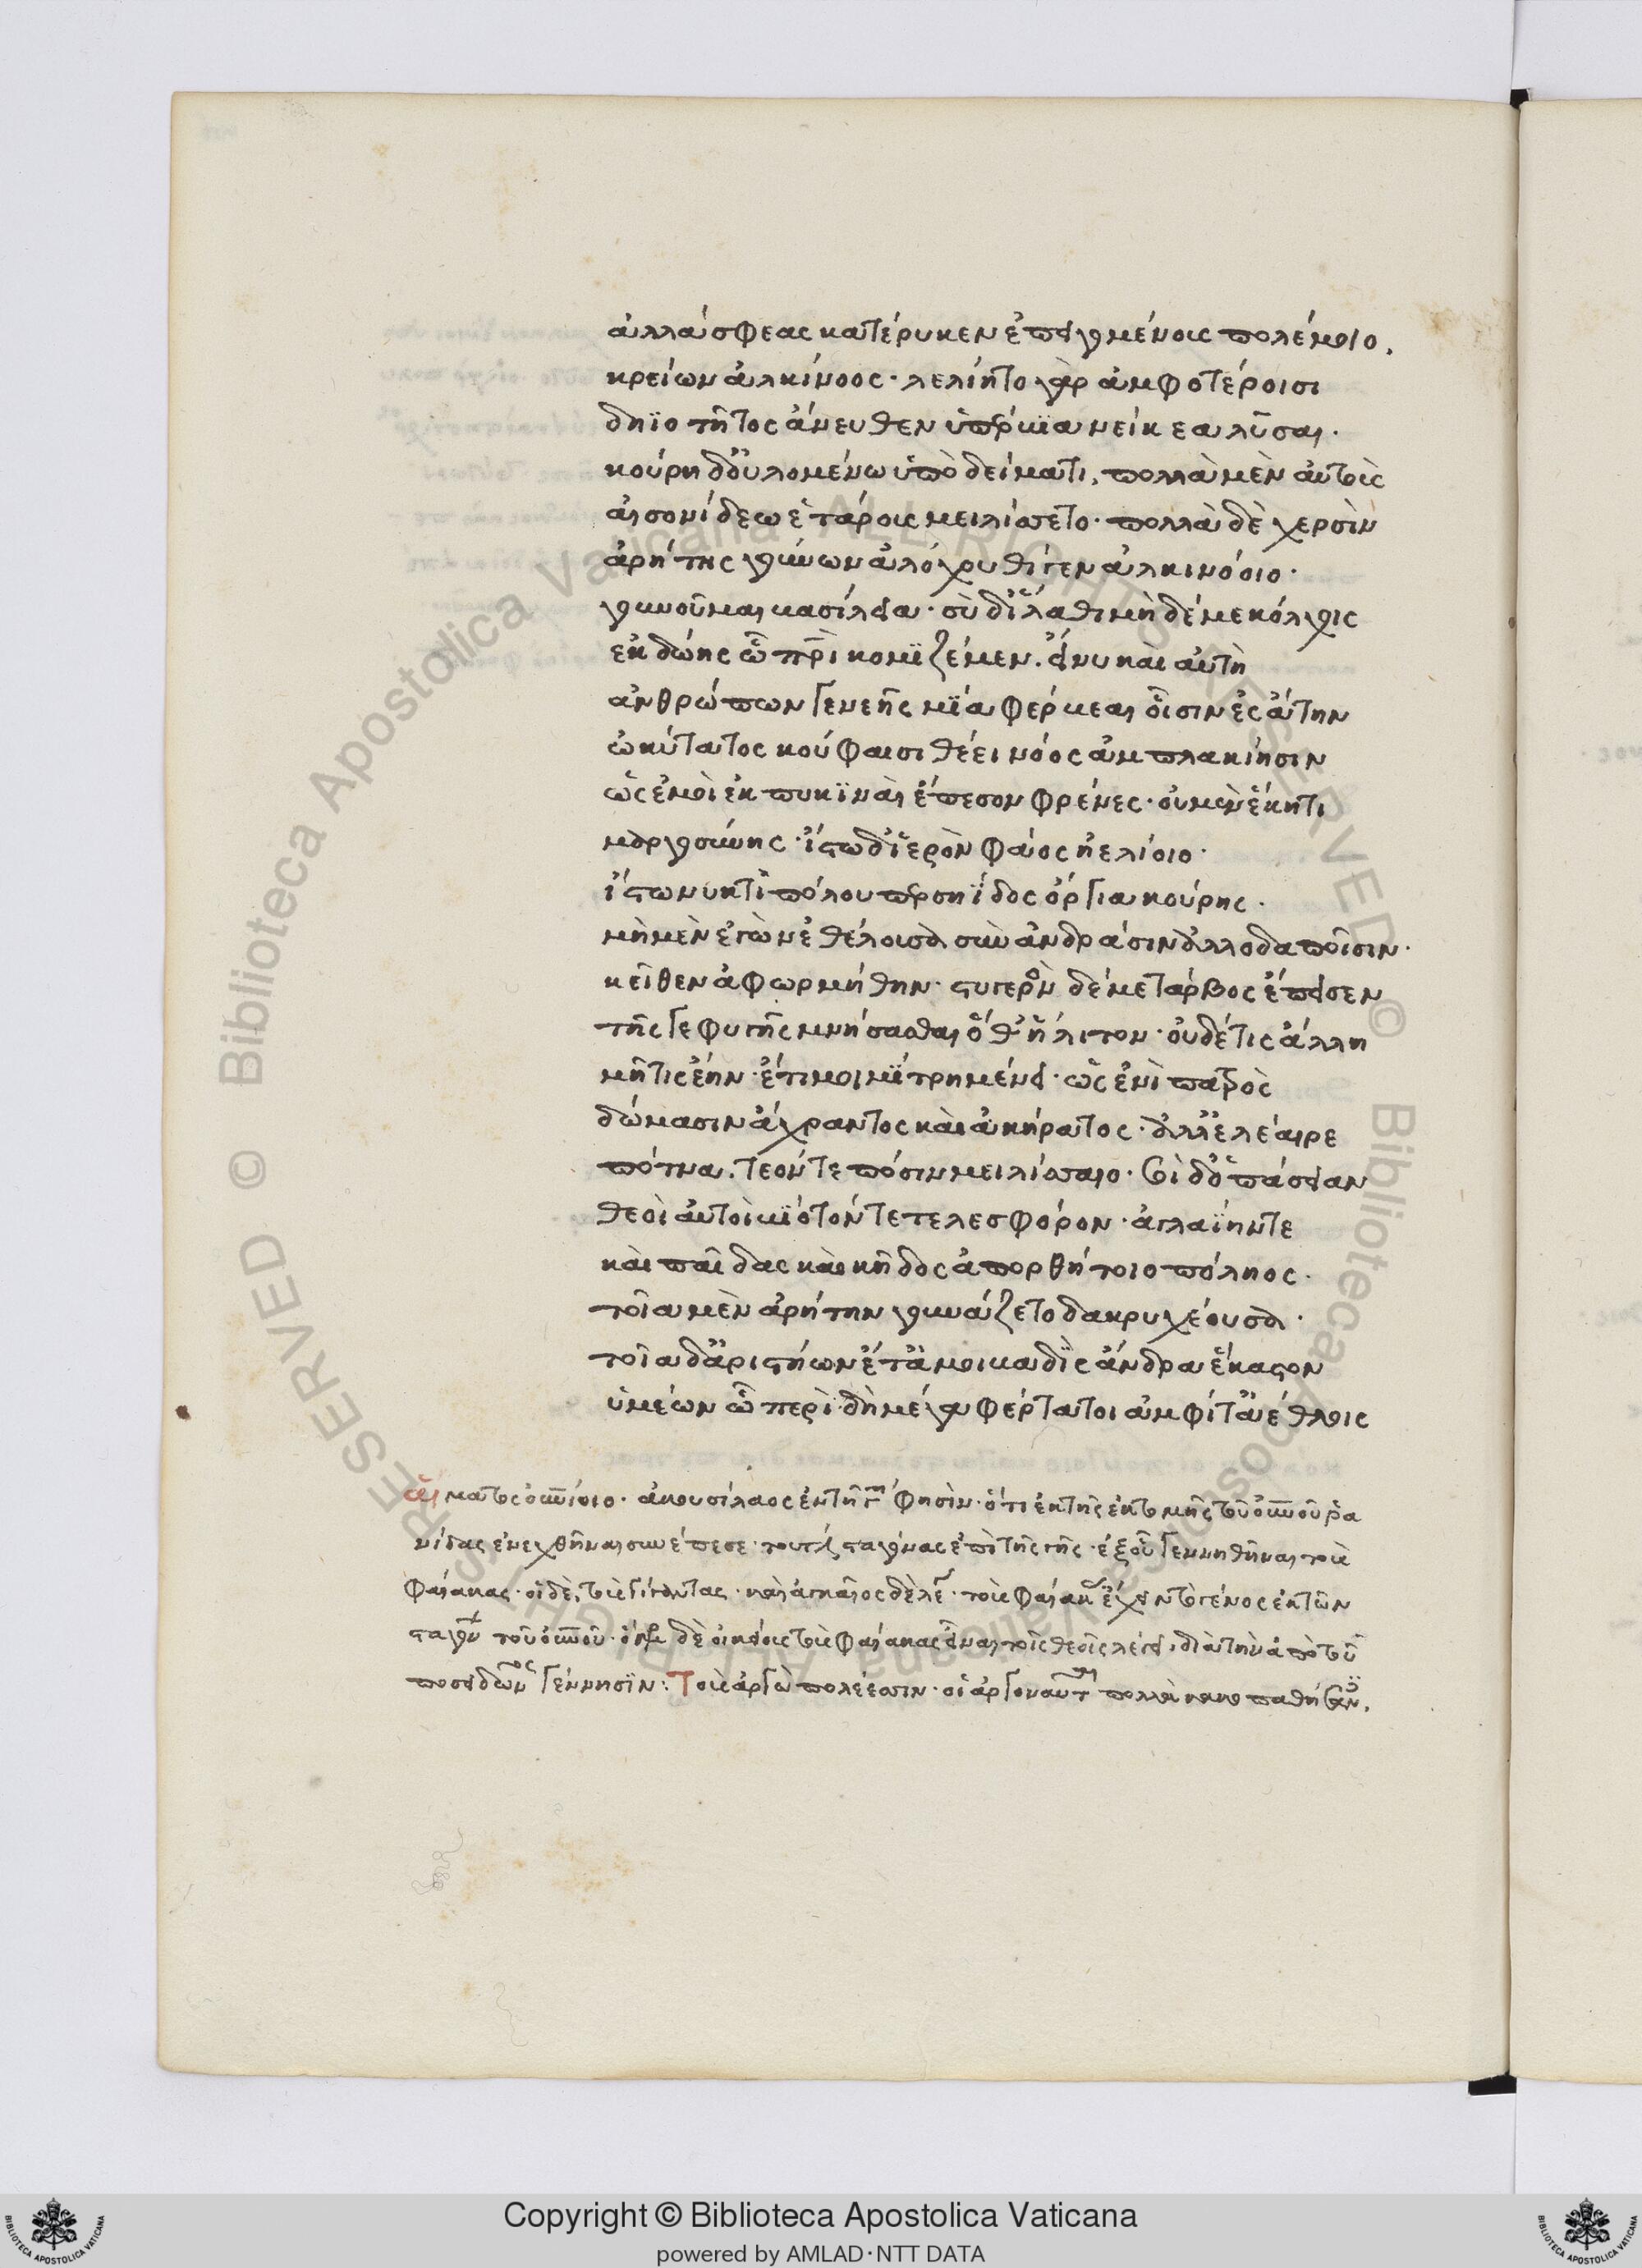 ἀλλά σφεας κατέρυκεν ἐπειγομένους πολέμοιο.
κρείων ἀλκίνοος· λελίητο γὰρ ἀμφοτέροισι
δηϊοτῆτος ἄνευθεν ὑπέρβια νείκεα λῦσαι.
κούρη δ' οὐλομένω ὑπὸ δείματι, πολλὰ μὲν αὐτοὺς
αἰσονίδεω ἑτάρους μειλίσσετο· πολλὰ δὲ χερσὶν
ἀρήτης γούνων ἀλόχου θίγεν ἀλκινόοιο·
γουνοῦμαι βασίλεια· σὺ δ' ἵλαθι μηδέ με κόλχοις
ἐκδώης ᾧ πατρὶ κομιζέμεν. εἴ νυ καὶ αὐτὴ
ἀνθρώπων γενεῆς μία φέρβεαι οἷσιν ἐς ἄτην
ὠκύτατος κούφαισι θέει νόος ἀμπλακίησιν
ὡς ἐμοὶ ἐκ πυκιναὶ ἔπεσον φρένες· οὐ μὲν ἕκητι
μαργοσύνης· ἴστω δ' ἱερὸν φάος ἠελίοιο·
ἴστω νυκτιπόλου περσηΐδος ὄργια κούρης.
μὴ μὲν ἐγὼν ἐθέλουσα σὺν ἀνδράσιν ἀλλοδαποῖσιν·
κεῖθεν ἀφωρμήθην· στυγερὸν δέ με τάρβος ἔπεισεν
τῆς γε φυγῆς μνήσασθαι ὅθ' ἤλιτον· οὐδέ τις ἄλλη
μῆτις ἔην· ἔτι μοι μίτρη μένει· ὡς ἐνὶ πατρὸς
δώμασιν ἄχραντος καὶ ἀκήρατος· ἀλλ' ἐλέαιρε
πότνα. τεόν τε πόσιν μειλίσσεο· σοὶ δ' ὀπάσειαν
θεοὶ αὐτοὶ βίοτόν τε τελεσφόρον· ἀγλαΐην τε
καὶ παῖδας καὶ κῦδος ἀπορθήτοιο πόληος.
τοῖα μὲν ἀρήτην γουνάζετο δακρυχέουσα·
τοῖα δ' ἀριστήων ἔτ' ἀμοιβαδὶς ἄνδρα ἕκαστον
ὑμέων ὦ περὶ δὴ μέγα φέρτατοι ἀμφί τ' ἀέθλοις
αἵματος οὐρανίοιο· ἀκουσίλαος ἐν τῇ γʹ φησὶν· ὅτι ἐκ τῆς ἐκτομῆς τοῦ οὐρανοῦ ῥα
νίδας ἐνεχθῆναι συνέπεσε· τουτέστι σταγόνας ἐπὶ τῆς γῆς· ἐξ οὗ γεννηθῆναι τοὺς
φαίακας· οἱ δὲ, τοὺς γίγαντας· καὶ ἀλκαῖος δὲ λέγει τοὺς φαίακας ἔχειν τὸ γένος ἐκ τῶν
σταγόνων τοῦ οὐρανοῦ· ὅμηρος δὲ οἰκείους τοὺς φαίακας εἶναι τοῖς θεοῖς λέγει διὰ τὴν ἀπὸ τοῦ
ποσειδῶνος γέννησιν: τοὺς ἀργὼ πολέεσσιν· οἱ ἀργοναῦται πολλὰ κακοπαθήσαντες.